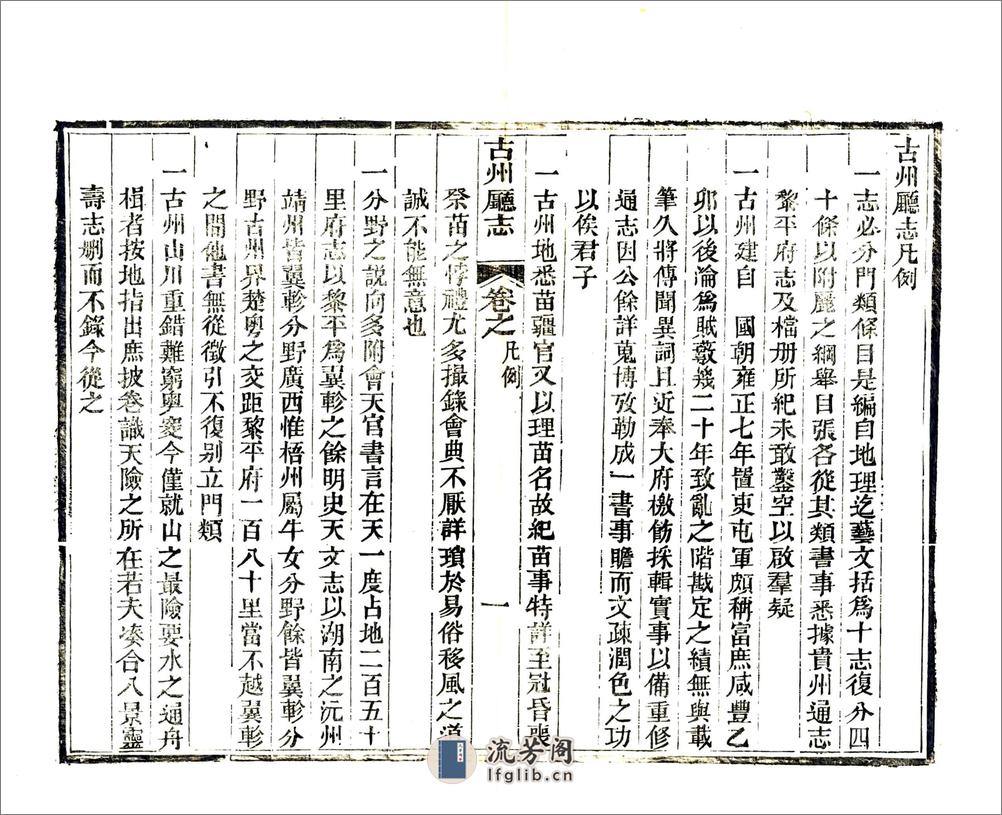 古州廳志凡例
一志必分門類條目是編自地理迄藝文括爲十志復分四
十條以附麗之綱舉目張各從其類書事悉據貴州通志
黎平府志及檔册所紀未敢鑿空以啟羣疑
一古州建自 國朝雍正七年置吏屯軍頗稱富庶咸豐乙
卯以後淪爲賊藪幾二十年致亂之階戡定之績無與載
筆久將傳聞異詞且近奉大府檄飭採輯實事以備重修
通志因公餘詳蒐博攷勒成一書事贍而文疎潤色之功
以俟君子
一古州地悉苗疆官又以理苗名故紀苗事特詳至冠昏喪
古州廳志 卷之 凡例 一
祭苗之悖禮尤多撮錄會典不厭詳瑣於易俗移風之道
誠不能無意也
一分野之説向多附會天官書言在天一度占地二百五十
里府志以黎平爲翼軫之餘明史天文志以湖南之沅州
靖州皆翼軫分野廣西惟梧州屬牛女分野餘皆翼軫分
野古州界楚粵之交距黎平府一百八十里當不越翼軫
之間他書無從徵引不復别立門類
一古州山川重錯難窮奥窔今僅就山之最險要水之通舟
楫者按地指出庶披卷識天險之所在若夫湊合八景靈
壽志删而不錄今從之
流芳阁
lfglib.cn